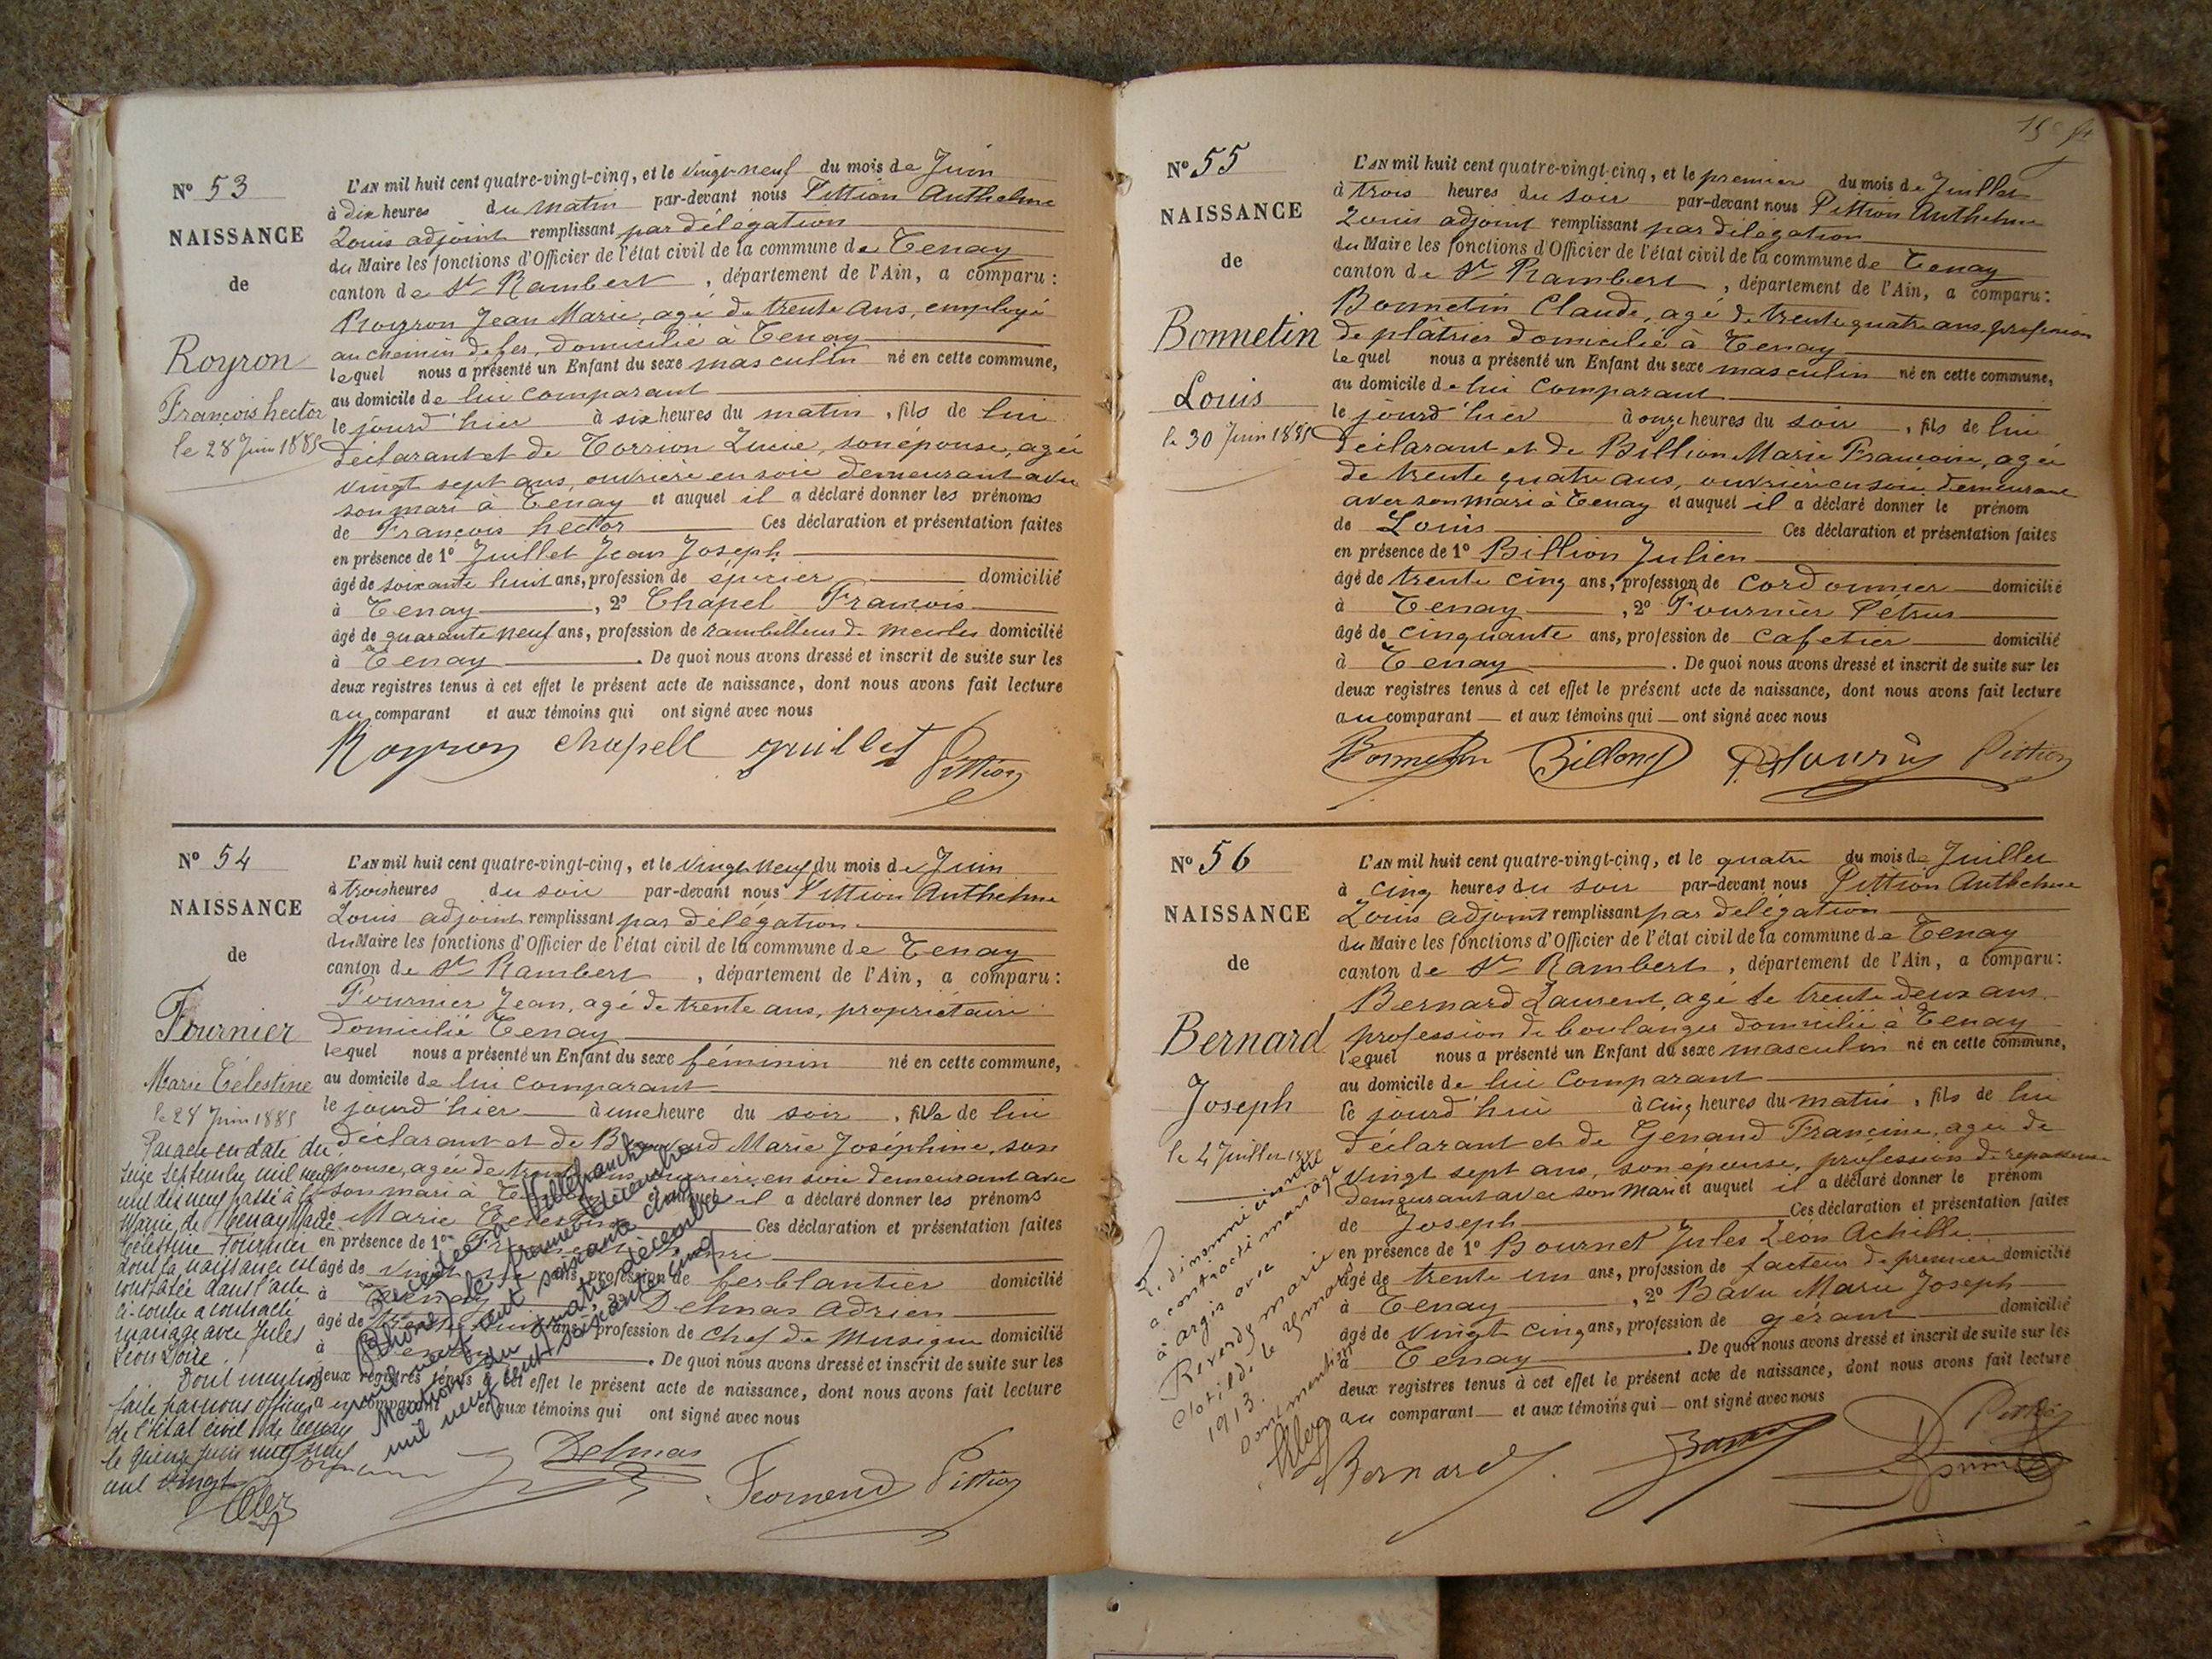 N° 53
NAISSANCE
de
Royron
François hector
le 28 Juin 1885
L'AN mil huit cent quatre-vingt-cinq, et le vingt-neuf du mois de Juin
à dix heures du matin par-devant nous Pittion Anthelme
Louis adjoint remplissant par délégation
du Maire les fonctions d'Officier de l'état civil de la commune de Tenay
canton de St Rambert, département de l'Ain, a comparu :
Royron Jean Marie, agé de trente ans, employé
au chemin de fer, domicilié à Tenay
lequel nous a présenté un Enfant du sexe masculin né en cette commune,
au domicile de lui comparant
le jourd'hier à six heures du matin, fils de lui
déclarant et de Torrion Lucie, son épouse, agée
vingt sept ans, ouvrière en soie demeurant avec
son mari à Tenay et auquel il a déclaré donner les prénoms
de François hector Ces déclaration et présentation faites
en présence de 1° Juillet Jean Joseph
âgé de soixante huit ans, profession de épicier domicilié
à Tenay, 2° Chapel François
âgé de quarante neuf ans, profession de rambilleur de meules domicilié
à Tenay. De quoi nous avons dressé et inscrit de suite sur les
deux registres tenus à cet effet le présent acte de naissance, dont nous avons fait lecture
au comparant et aux témoins qui ont signé avec nous
Royron chapell guillet Pittion
N° 54
NAISSANCE
de
Fournier
Marie Célestine
le 28 Juin 1885
Par acte en date du
seize septembre mil neuf
cent dix neuf passé à la
Mairie de Tenay Marie
Célestine Fournier
dont la naissance est
constatée dans l'acte
ci-contre a contracté
mariage avec Jules
Léon Loire.
Dont mention
faite par nous officier
de l'état civil de Tenay
le quinze juin mil neuf
cent vingt
L'AN mil huit cent quatre-vingt-cinq, et le vingt-neuf du mois de Juin
à trois heures du soir par-devant nous Pittion Anthelme
Louis adjoint remplissant par délégation
du Maire les fonctions d'Officier de l'état civil de la commune de Tenay
canton de St Rambert, département de l'Ain, a comparu :
Fournier Jean, agé de trente ans, propriétaire
domicilié Tenay
lequel nous a présenté un Enfant du sexe féminin né en cette commune,
au domicile de lui comparant
le jourd'hier à une heure du soir, fille de lui
déclarant et de Marie Joséphine, son
épouse, agée de ouvrière en soie demeurant avec
son mari à Tenay auquel il a déclaré donner les prénoms
de Marie Célestine Ces déclaration et présentation faites
en présence de 1°
âgé de vingt ans, profession de ferblantier domicilié
à Tenay, 2° Delmas Adrien
âgé de trente huit ans, profession de chef de musique domicilié
à Tenay. De quoi nous avons dressé et inscrit de suite sur les
deux registres tenus à cet effet le présent acte de naissance, dont nous avons fait lecture
au comparant et aux témoins qui ont signé avec nous
Décédée à Villefranche
(Rhône) le premier décembre
mil neuf cent soixante cinq
Mention du quatre décembre
mil neuf cent soixante cinq
Delmas Pittion
N° 55
NAISSANCE
de
Bonnetin
Louis
le 30 Juin 1885
L'AN mil huit cent quatre-vingt-cinq, et le premier du mois de Juillet
à trois heures du soir par-devant nous Pittion Anthelme
Louis adjoint remplissant par délégation
du Maire les fonctions d'Officier de l'état civil de la commune de Tenay
canton de St Rambert, département de l'Ain, a comparu :
Bonnetin Claude, agé de trente quatre ans, profession
de plâtrier domicilié à Tenay
lequel nous a présenté un Enfant du sexe masculin né en cette commune,
au domicile de lui comparant
le jourd'hier à onze heures du soir, fils de lui
déclarant et de Billion Marie Françoise, agée
de trente quatre ans, ouvrière en soie demeurant
avec son mari à Tenay et auquel il a déclaré donner le prénom
de Louis Ces déclaration et présentation faites
en présence de 1° Billion Julien
âgé de trente cinq ans, profession de cordonnier domicilié
à Tenay, 2° Fournier Pétrus
âgé de cinquante ans, profession de cafetier domicilié
à Tenay. De quoi nous avons dressé et inscrit de suite sur les
deux registres tenus à cet effet le présent acte de naissance, dont nous avons fait lecture
au comparant et aux témoins qui ont signé avec nous
Bonnetin Pittion
N° 56
NAISSANCE
de
Bernard
Joseph
le 4 Juillet 1885
Le dénommé ci-contre
a contracté mariage
à Argis avec
Reverdy Marie
Clotilde le 29 mars
1913.
Dont mention
L'AN mil huit cent quatre-vingt-cinq, et le quatre du mois de Juillet
à cinq heures du soir par-devant nous Pittion Anthelme
Louis adjoint remplissant par délégation
du Maire les fonctions d'Officier de l'état civil de la commune de Tenay
canton de St Rambert, département de l'Ain, a comparu :
Bernard Laurent, agé de trente deux ans
profession de boulanger domicilié à Tenay
lequel nous a présenté un Enfant du sexe masculin né en cette commune,
au domicile de lui comparant
le jourd'hui à cinq heures du matin, fils de lui
déclarant et de Génand Francine, agée de
vingt sept ans, son épouse, profession de repasseuse
demeurant avec son mari et auquel il a déclaré donner le prénom
de Joseph Ces déclaration et présentation faites
en présence de 1° Bournet Jules Léon Achille
âgé de trente un ans, profession de facteur de première domicilié
à Tenay, 2° Bavu Marie Joseph
âgé de vingt cinq ans, profession de gérant domicilié
à Tenay. De quoi nous avons dressé et inscrit de suite sur les
deux registres tenus à cet effet le présent acte de naissance, dont nous avons fait lecture
au comparant et aux témoins qui ont signé avec nous
Bernard